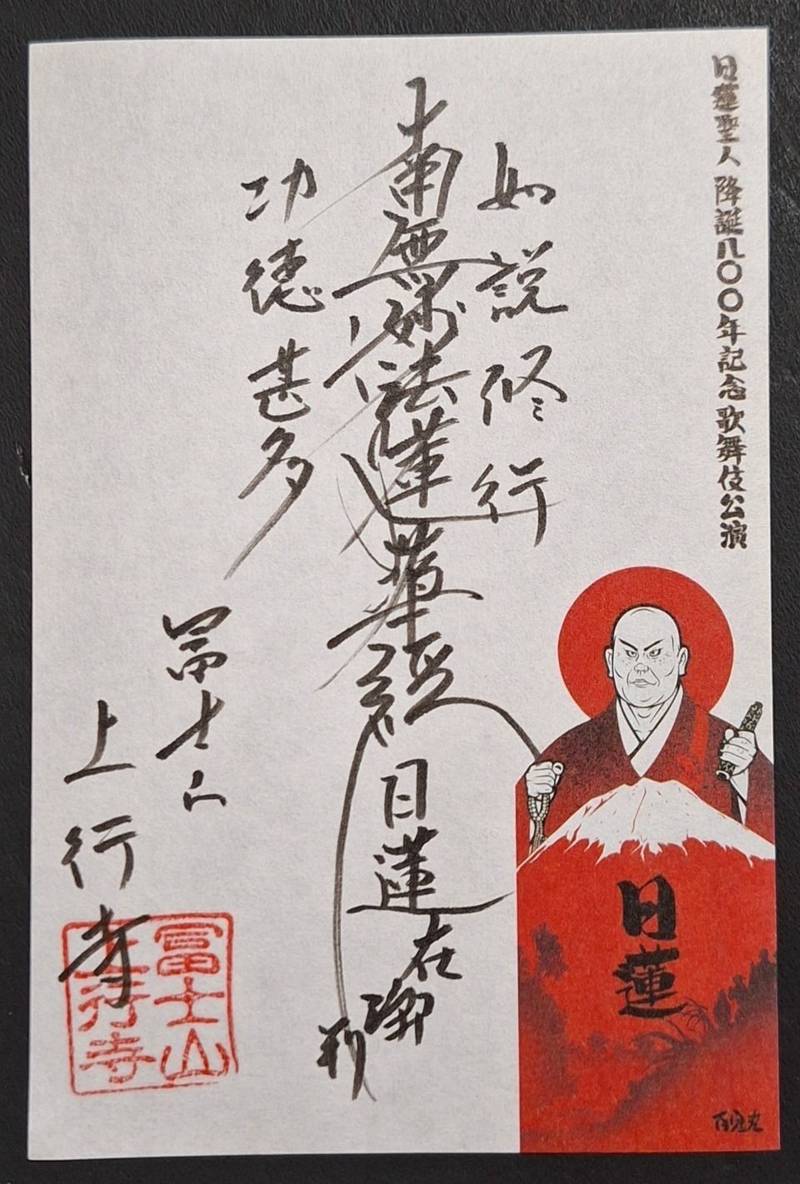 日蓮聖人 降誕八〇〇年記念歌舞伎公演
如説修行
南無妙法蓮華経
日蓮
在御判
功徳甚多
冨士山
上行寺
冨士山
上行寺
日蓮